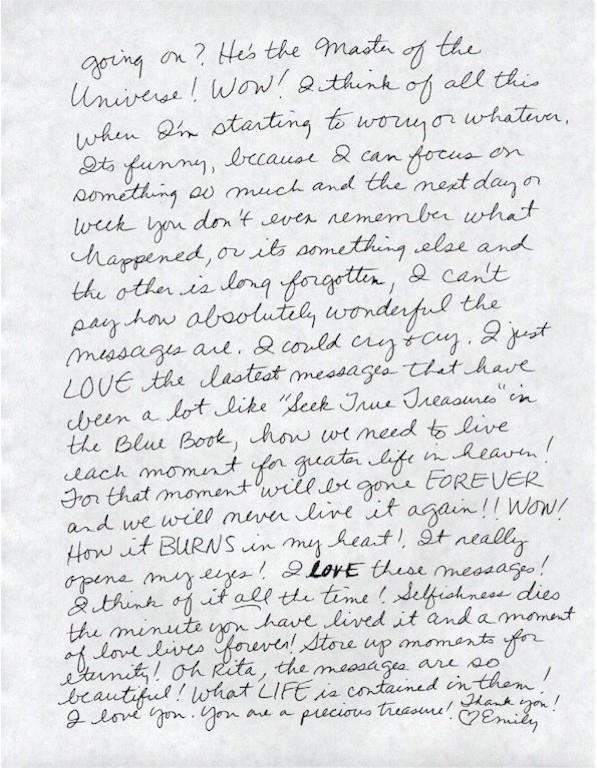 going on? He's the Master of the
Universe! WOW! I think of all this
when I'm starting to worry or whatever.
Its funny, because I can focus on
something so much and the next day or
week you don't even remember what
happened, or its something else and
the other is long forgotten, I can't
say how absolutely wonderful the
messages are. I could cry & cry. I just
LOVE the lastest messages that have
been a lot like "Seek True Treasures" in
the Blue Book, how we need to live
each moment for greater life in heaven!
For that moment will be gone FOREVER
and we will never live it again!! WOW!
How it BURNS in my heart! It really
opens my eyes! I LOVE these messages!
I think of it all the time! Selfishness dies
the minute you have lived it and a moment
of love lives forever! Store up moments for
eternity! Oh Rita, the messages are so
beautiful! What LIFE is contained in them!
I love you. You are a precious treasure! Thank you!
♡ Emily